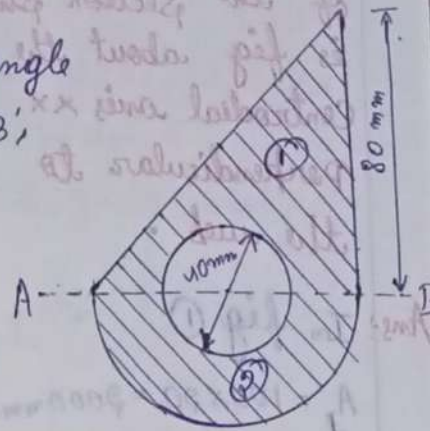 ngle
3;
①
80 mm
40mm
A
②